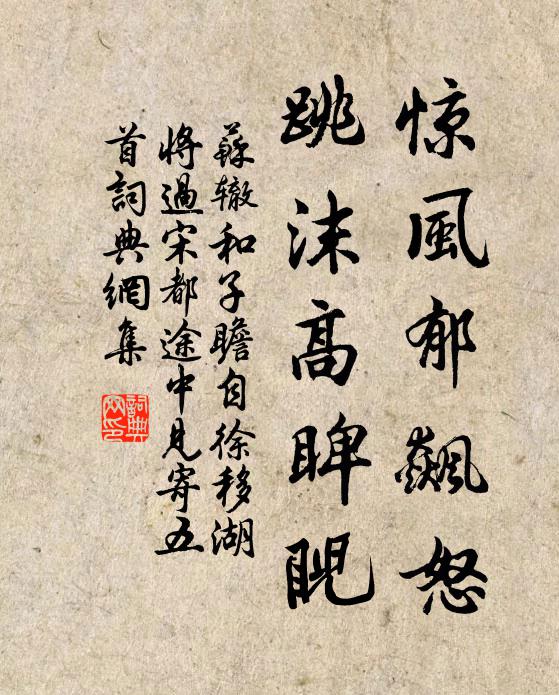 惊風郁飆怒
跳沫高睥睨
蘇辙和子瞻自徐移湖
將過宋都途中見寄五
首詞典網集
詞典
网印